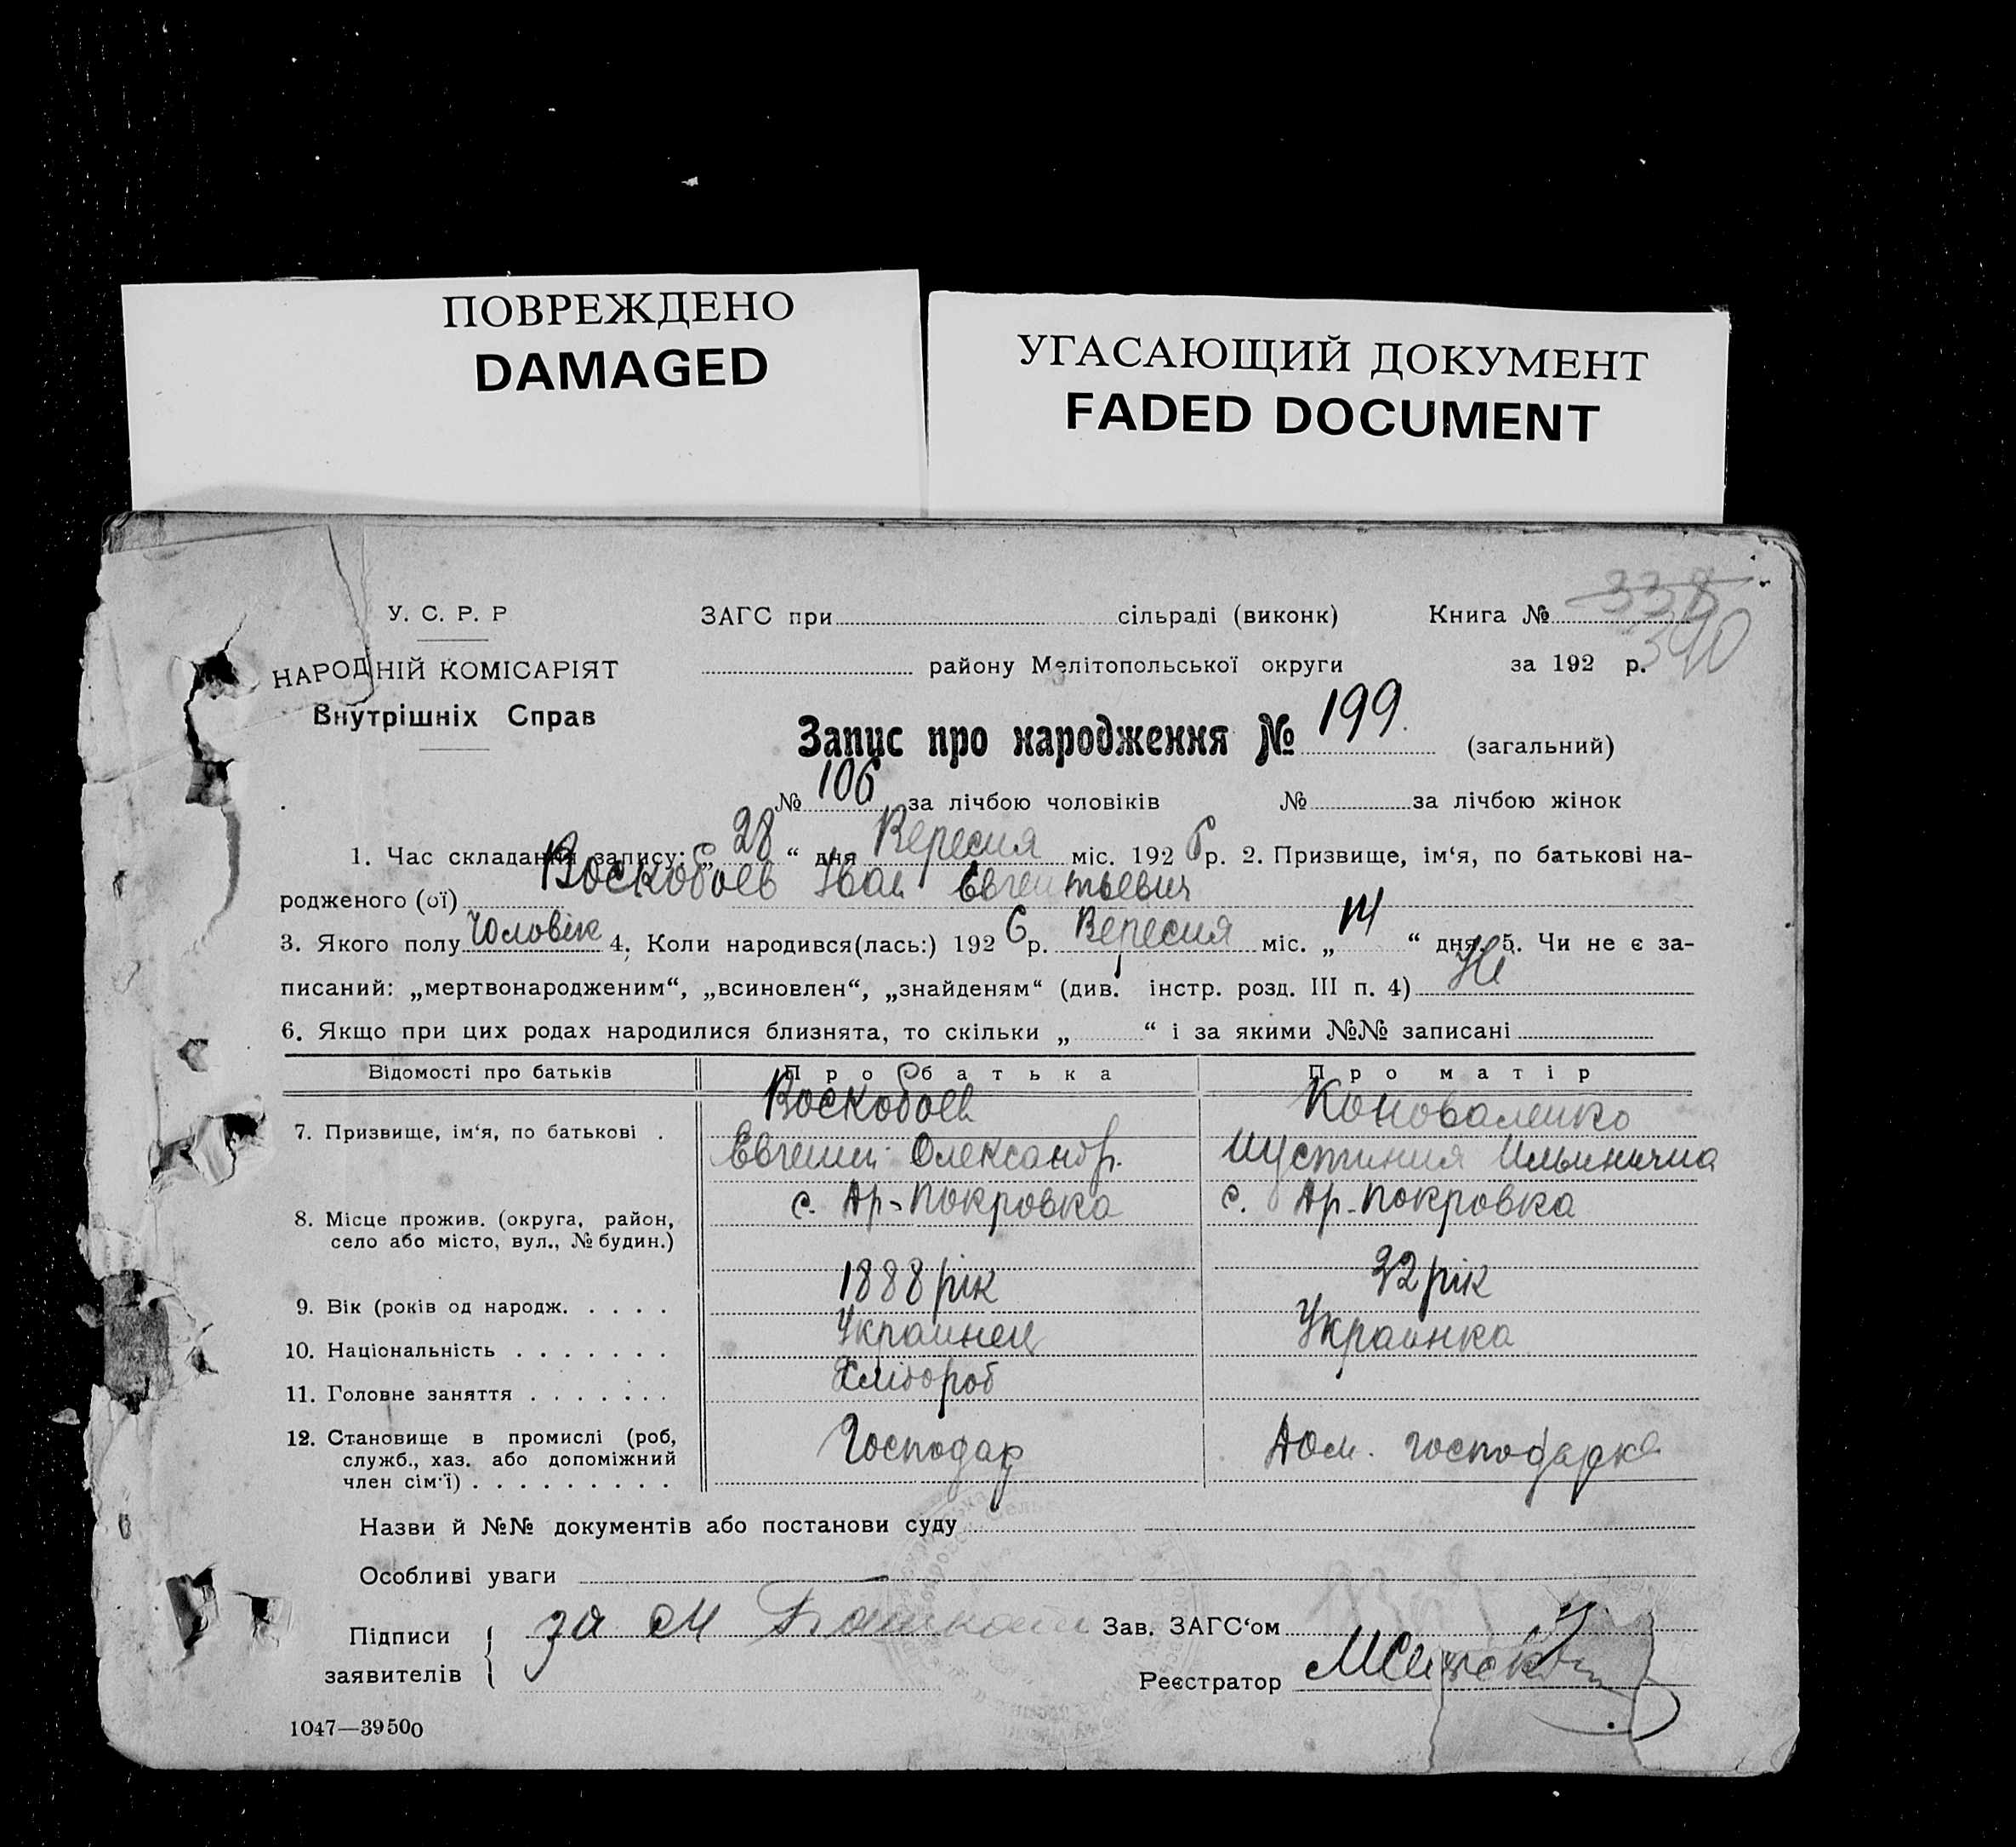 ПОВРЕЖДЕНО
DAMAGED
УГАСАЮЩИЙ ДОКУМЕНТ
FADED DOCUMENT
338
340
У. С. Р. Р
ЗАГС при сільраді (виконк) Книга №
НАРОДНІЙ КОМІСАРІЯТ
району Мелітопольської округи за 192 р.
Внутрішніх Справ
Запис про народження № 199. (загальний)
№ 106 за лічбою чоловіків № за лічбою жінок
1. Час складання запису: „ 28 “ дня Вересня міс. 192 6 р. 2. Призвище, ім‘я, по батькові на-
родженого (ої) Воскобоев Іван Евгентьевич
3. Якого полу Чоловік 4. Коли народився(лась:) 192 6 р. Вересня міс. „ 14 “ дня. 5. Чи не є за-
писаний: „мертвонародженим“, „всиновлен“, „знайденям“ (див. інстр. розд. III п. 4) Ні
6. Якщо при цих родах народилися близнята, то скільки „ “ і за якими №№ записані
Відомості про батьків Про батька Про матір
Воскобоев Коноваленко
7. Призвище, ім‘я, по батькові .
Евгений Олександр. Иустиния Ильинична
с. Ар-Покровка с. Ар-Покровка
8. Місце прожив. (округа, район,
село або місто, вул., № будин.)
1888 рік 32 рік
9. Вік (років од народж. . . . .
Украинец Украинка
10. Національність . . . . . . .
Хлібороб
11. Головне заняття . . . . . . .
12. Становище в промислі (роб,
служб., хаз. або допоміжний Господар Дом. господарка
член сім‘ї) . . . . . . . . .
Назви й №№ документів або постанови суду
Особливі уваги
Підписи за Зав. ЗАГС‘ом
заявителів Реєстратор
1047—39500